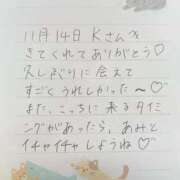 11月14日 Kさんっ
きてくれてありがとう♡
久しぶりに会えて
すごくうれしかった〜♡
また、こっちに来るタイミ
ングがあったら、あみと
イチャイチャしようね♡